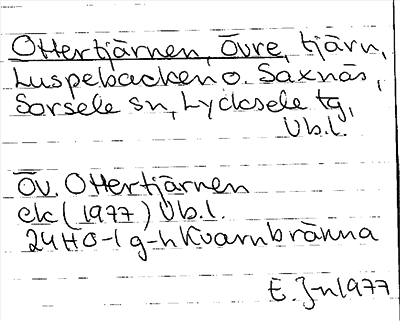 Ottertjärnen, övre, tjärn,
Luspebacken o. Saxnäs,
Sorsele sn, Lycksele tg,
Vb.l.
Öv. Ottertjärnen
ek (1977) Vb.l.
24H 0-1 g-h Kvarnbränna
E. J-n 1977